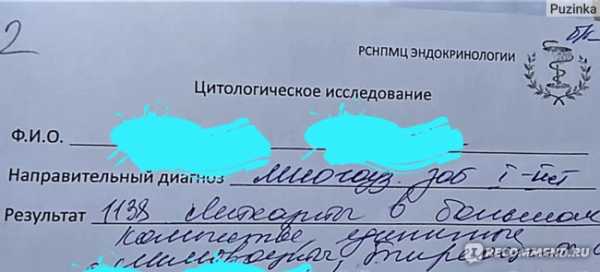 Puzinka
2
РСНПМЦ ЭНДОКРИНОЛОГИИ
Цитологическое исследование
Ф.И.О.
Направительный диагноз многоуз. зоб I-ст
Результат 1138 в большом
количестве единичные
IRECOMMEND.RU